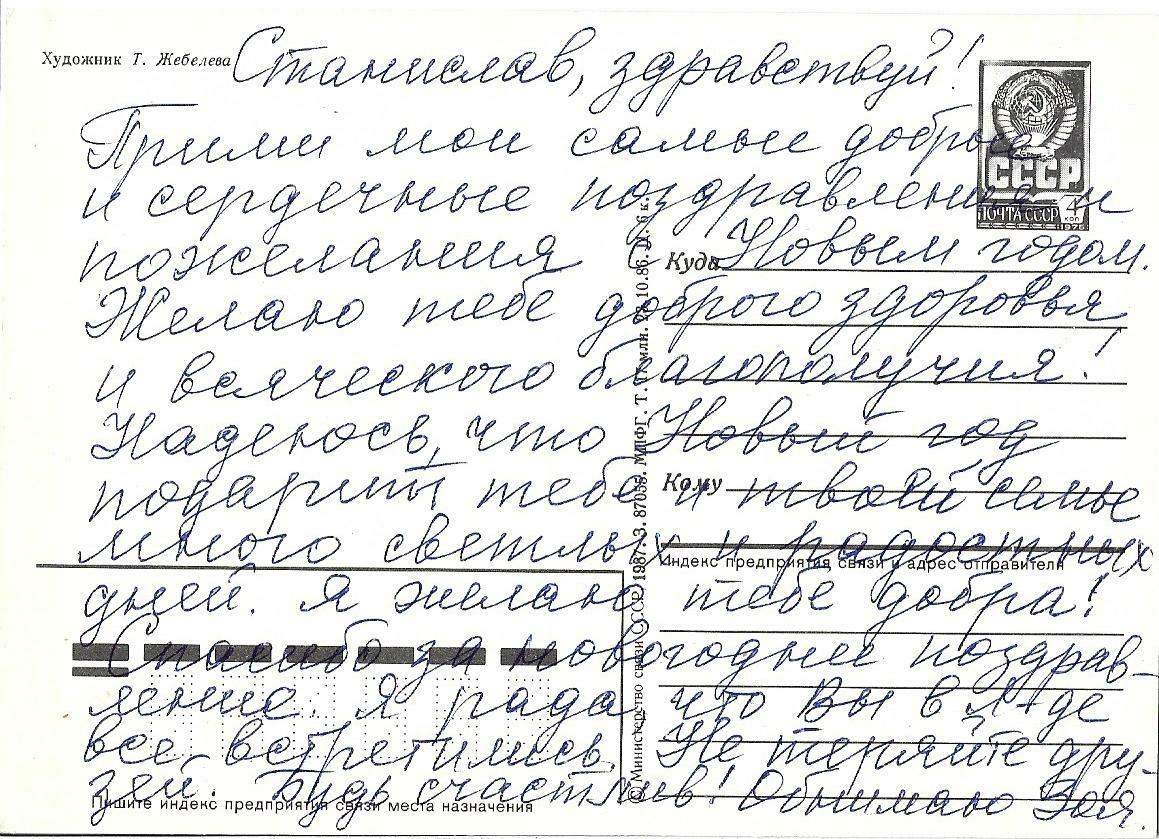 Художник Т. Жебелева
Станислав, здравствуй!
Прими мои самые добрые
и сердечные поздравления и
пожелания с Новым годом.
Желаю тебе доброго здоровья
и всяческого благополучия!
Надеюсь, что Новый год
подарит тебе и твоей семье
много светлых и радостных
дней. Я желаю тебе добра!
Спасибо за новогоднее поздрав-
ление. Я рада что Вы в Л-де
все-встретились Не теряйте дру-
зей. Будь счастлив! Обнимаю Зоя.
СССР
ПОЧТА СССР
4
КОП
1976
Куда
Кому
Индекс предприятия связи и адрес отправителя
Пишите индекс предприятия связи места назначения
© Министерство связи СССР, 1987. З. 87055. МПФГ. Т. млн. 10.86. Ц. 6 к.